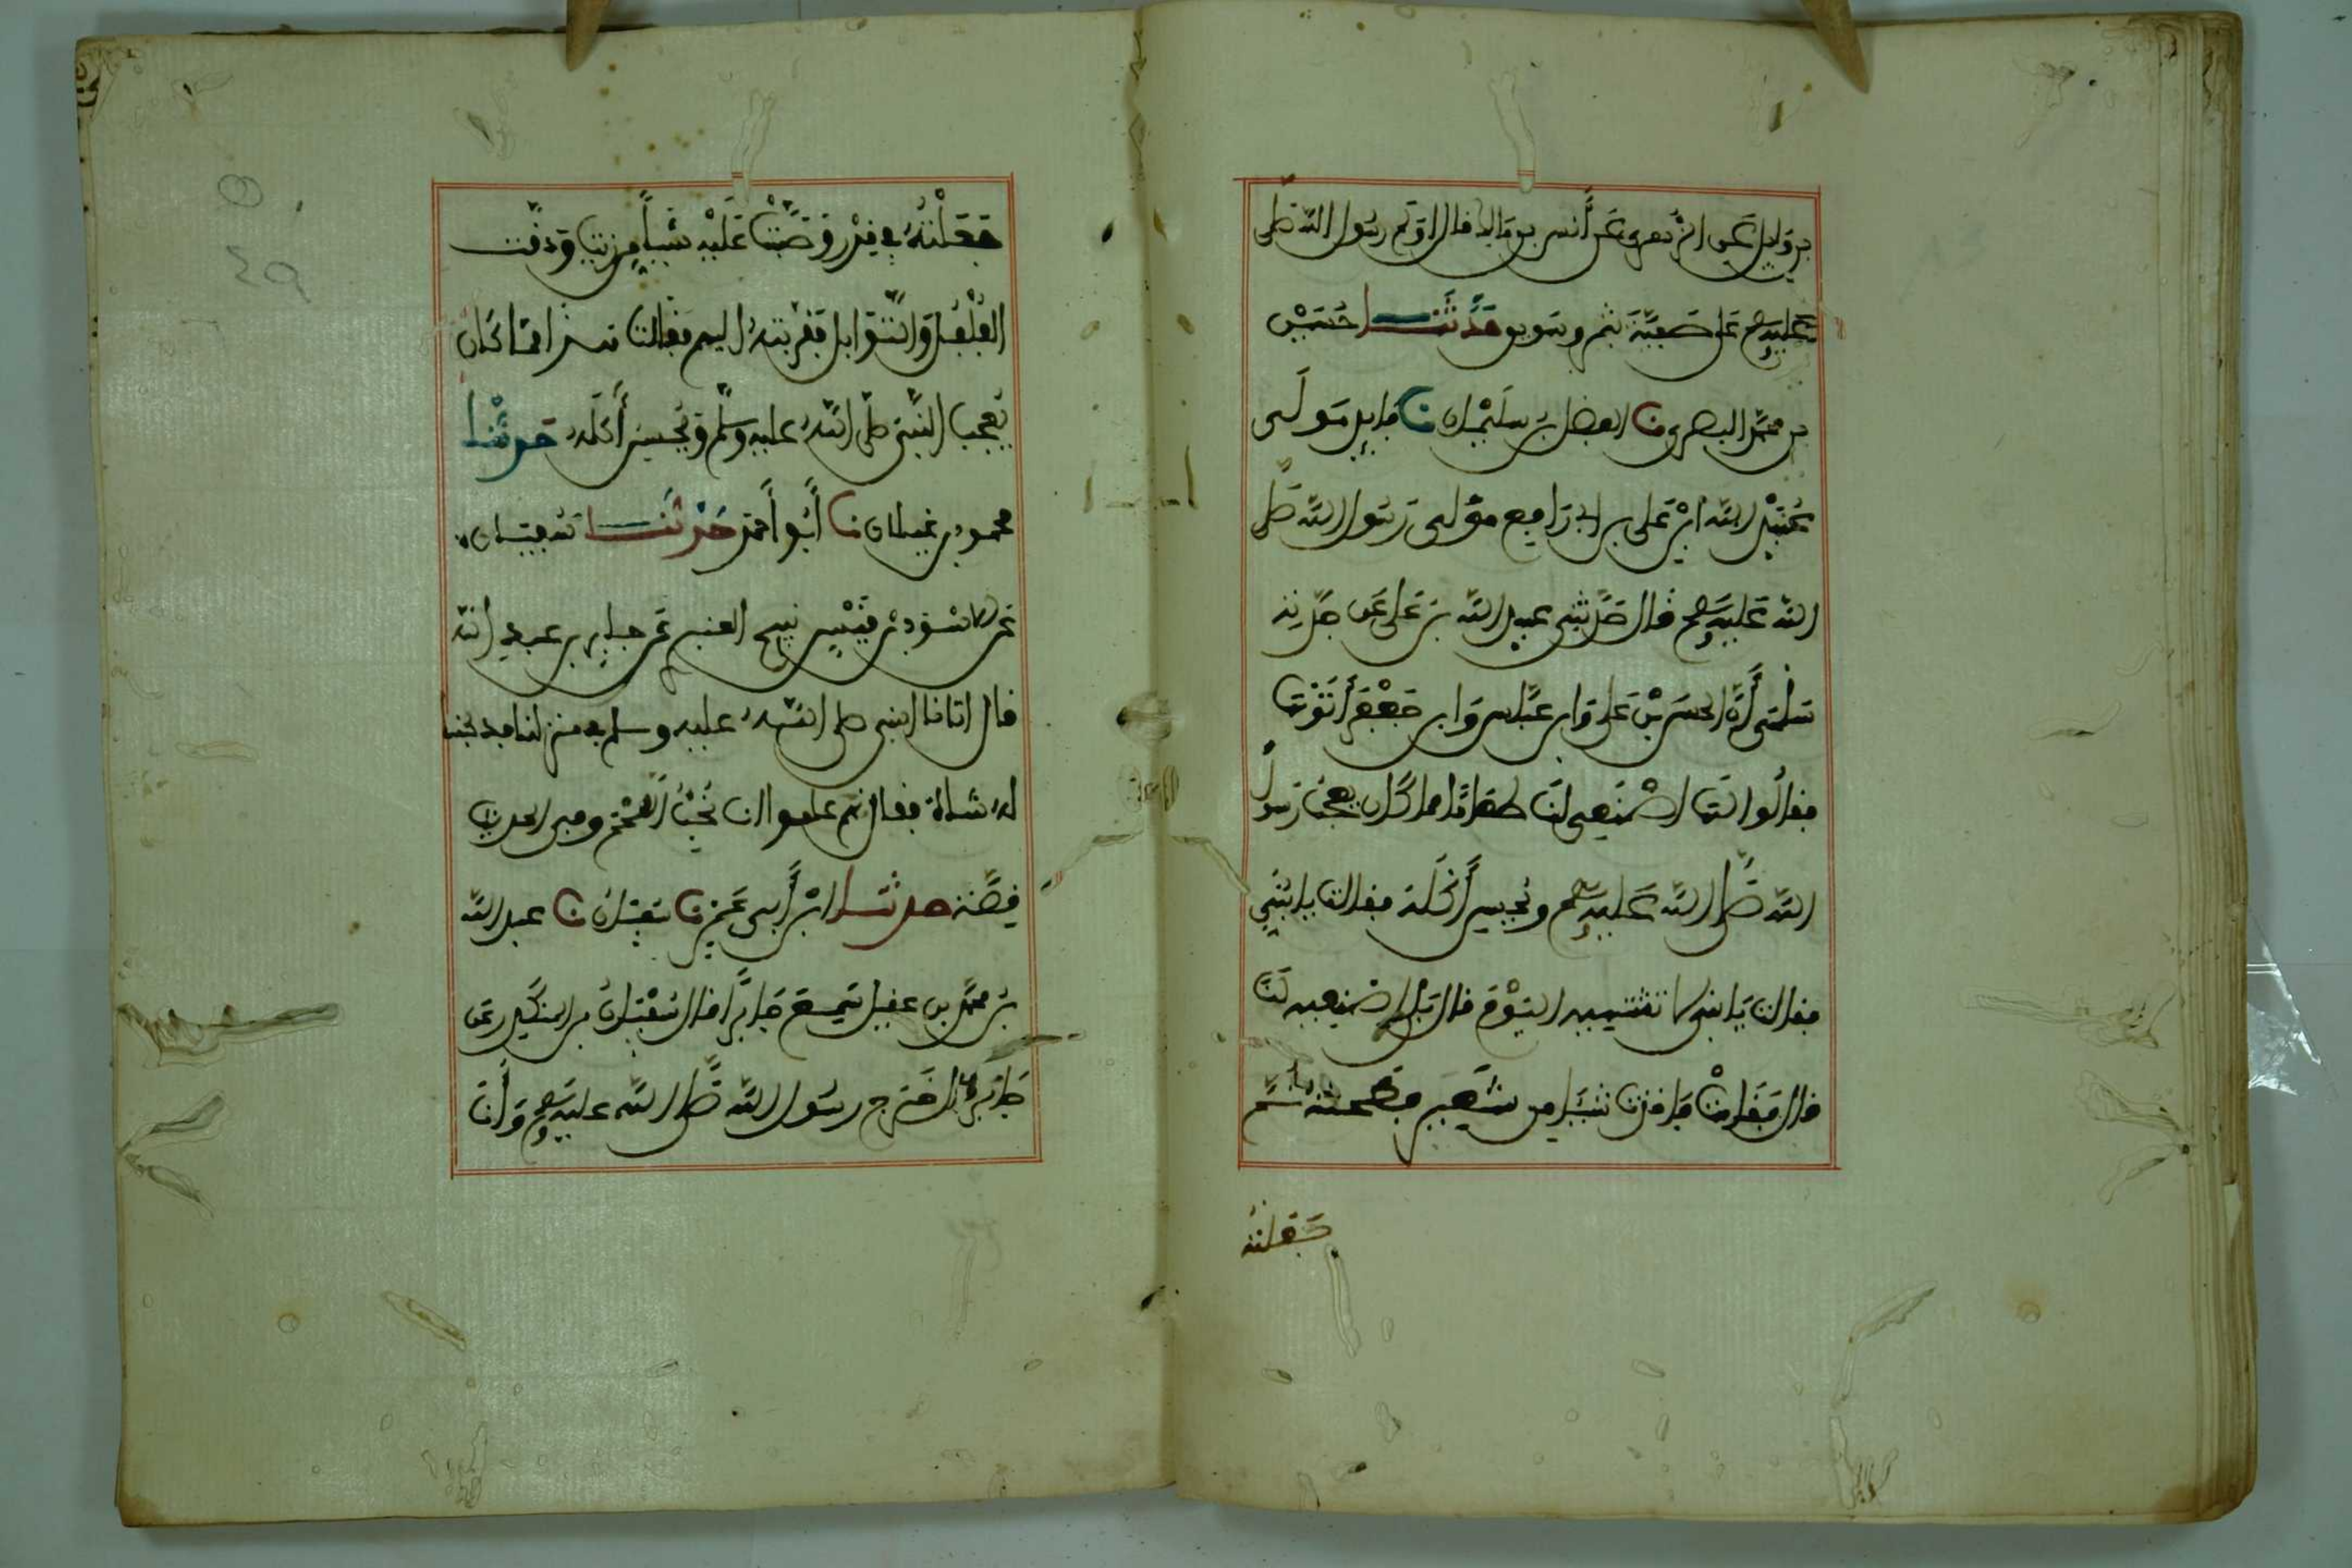 بن وايل عن الزهري عن أنس بن مالك قال اولم رسول الله صلى
عليه وسلم على صفية بتمر وسويق حدثنا حسين
بن محمد البصري نا الفضل بن سليمان نا فايد مولى
عبيد الله ابن علي بن ابي رافع مولى رسول الله صلى
الله عليه وسلم قال حدثني عبيد الله بن علي عن جدته
سلمى أن الحسن بن علي وابن عباس وابن جعفر أتوها
فقالوا لها اصنعي لنا طعاما مما كان يعجب رسول
الله صلى الله عليه وسلم ويحسن أكله فقالت يا بني
فقالت يا بني لا تشتهيه اليوم قال بلى اصنعيه لنا
قال فقامت فاخذت شيئا من شعير فطحنته ثم
جعلته
جعلته في قدر وصبت عليه شيئا من زيت ودقت
الفلفل والتوابل فقربته اليهم فقالت هذا مما كان
يعجب النبي صلى الله عليه وسلم ويحسن أكله حدثنا
محمود بن غيلان نا أبو أحمد حدثنا سفيان
عن الاسود بن قيس نبيح العنبر عن جابر بن عبد الله
قال اتانا النبي صلى الله عليه وسلم في منزلنا فذبحنا
له شاة فقال كانهم علموا انا نحب اللحم وفي الحديث
قصة حدثنا ابن أبي عمر نا سفيان نا عبد الله
بن محمد بن عقيل سمع جابرا قال سفيان بن المنكدر عن
جابر قال خرج رسول الله صلى الله عليه وسلم وأنا
٤٩